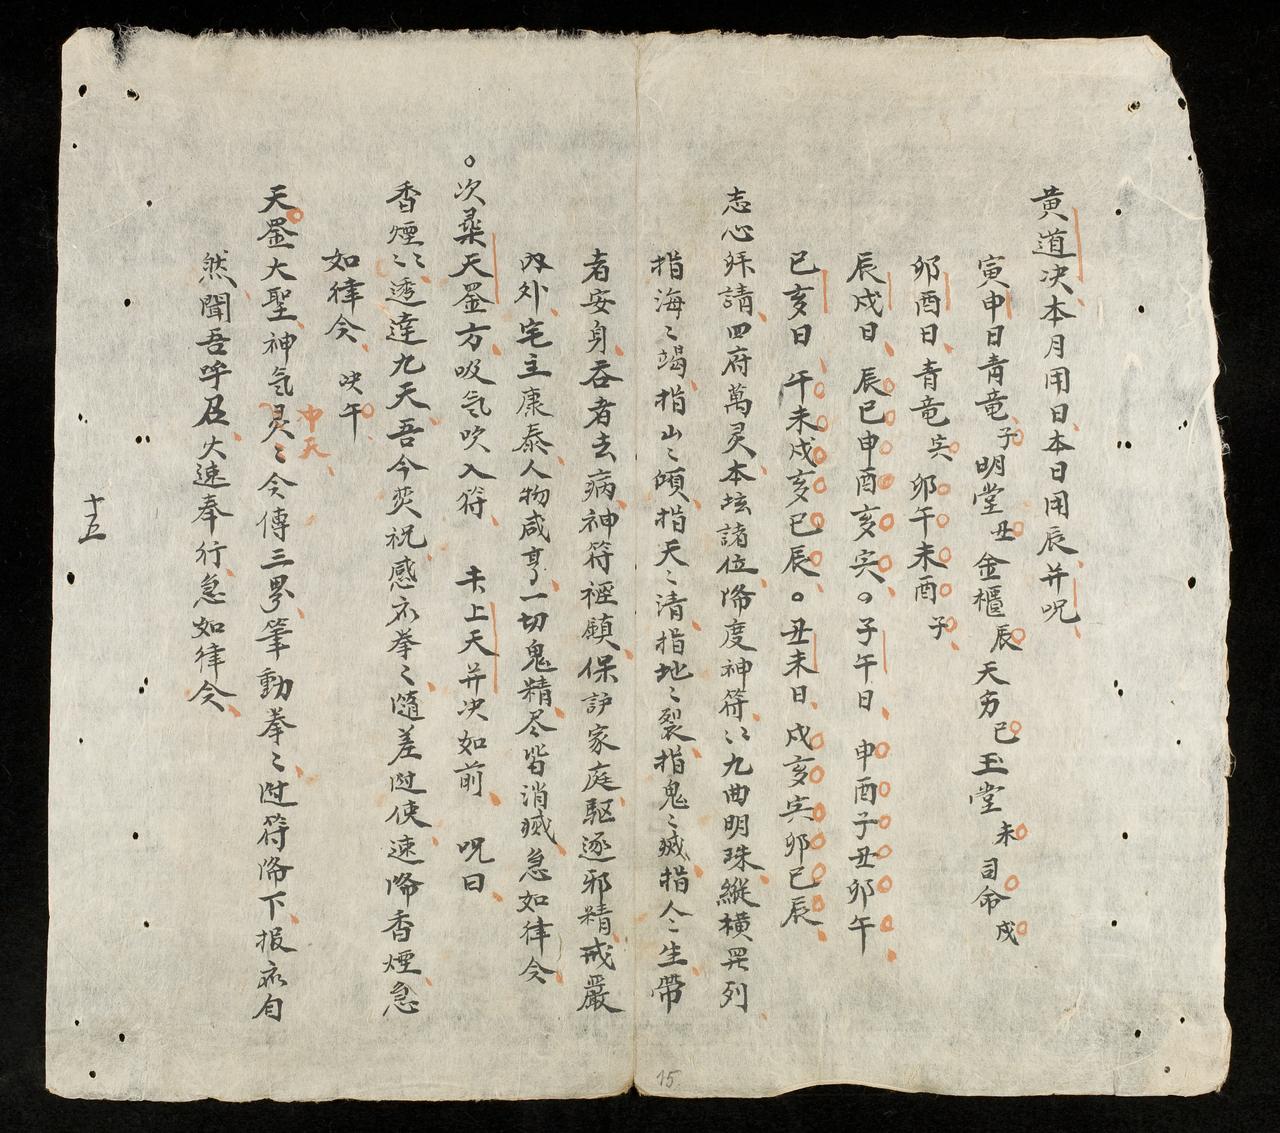 黄道决本月用日本日用辰并呪
寅申日青竜子明堂丑金櫃辰天方巳玉堂未司命戌
卯酉日青竜寅卯午未酉子
辰戌日辰巳申酉亥寅。子午日申酉子丑卯午
巳亥日午未戌亥巳辰。丑未日戌亥寅卯巳辰
志心拜請四府萬灵本坛諸位降度神符〻九曲明珠縱横羅列
指海〻竭指山〻傾指天〻清指地〻裂指鬼〻滅指人〻生帶
者安身吞者去病神符鎮保護家庭駆逐邪精戒嚴
内外宅主康泰人物咸亨一切鬼精尽皆消滅急如律令
。次桒天罡方吸気吹入符未上天并决如前呪曰
香煙〻透達九天吾今焚祝感衣拳〻隨差陞使速降香煙急
如律令决午
中天
天罡大聖神気灵〻今傳三界筆動拳〻陞符降下报衣自
然聞吾呼召火速奉行急如律令
十五
15